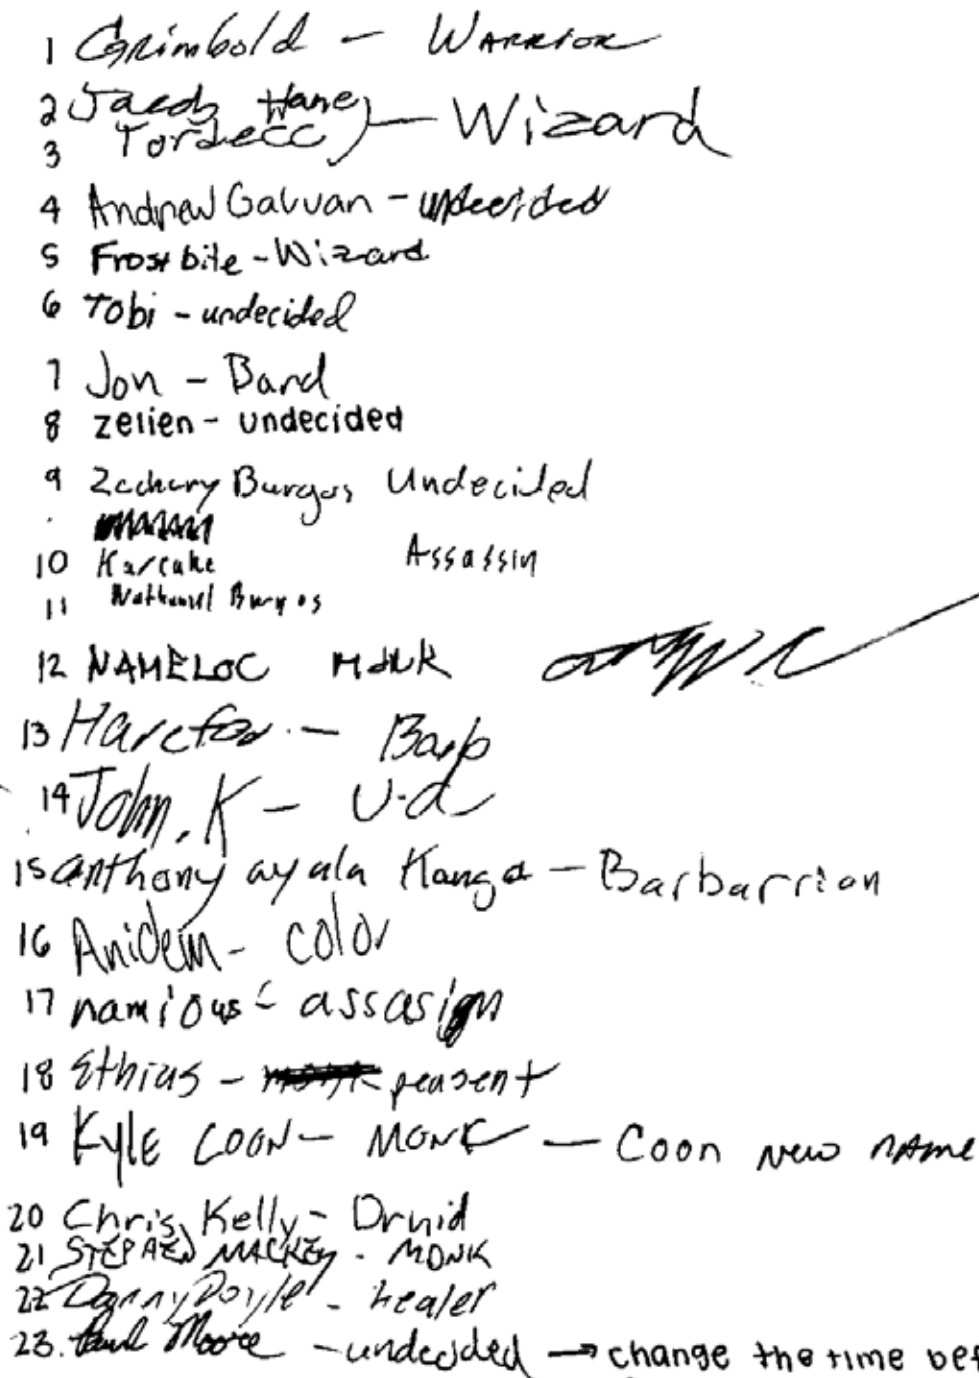 1 Grimbold - Warrior
2 Jacob Haney - Wizard
3 Tordecc
4 Andrew Galvan - undecided
5 Frostbite - Wizard
6 Tobi - undecided
7 Jon - Bard
8 zelien - undecided
9 Zachary Burgos Undecided
10 Karcake Assassin
11 Nathaniel Burgos
12 NAMELOC MONK
13 - Barb
14 John.K - U-d
15 anthony ayala Kanga - Barbarrian
16 Anidem - color
17 namious - assasign
18 Ethius - peasent
19 Kyle COON - MONK - Coon new name
20 Chris Kelly - Druid
21 STEPHEN MACKEY - MONK
22 Danny Doyle - healer
23. Paul Moore - undecided → change the time bef